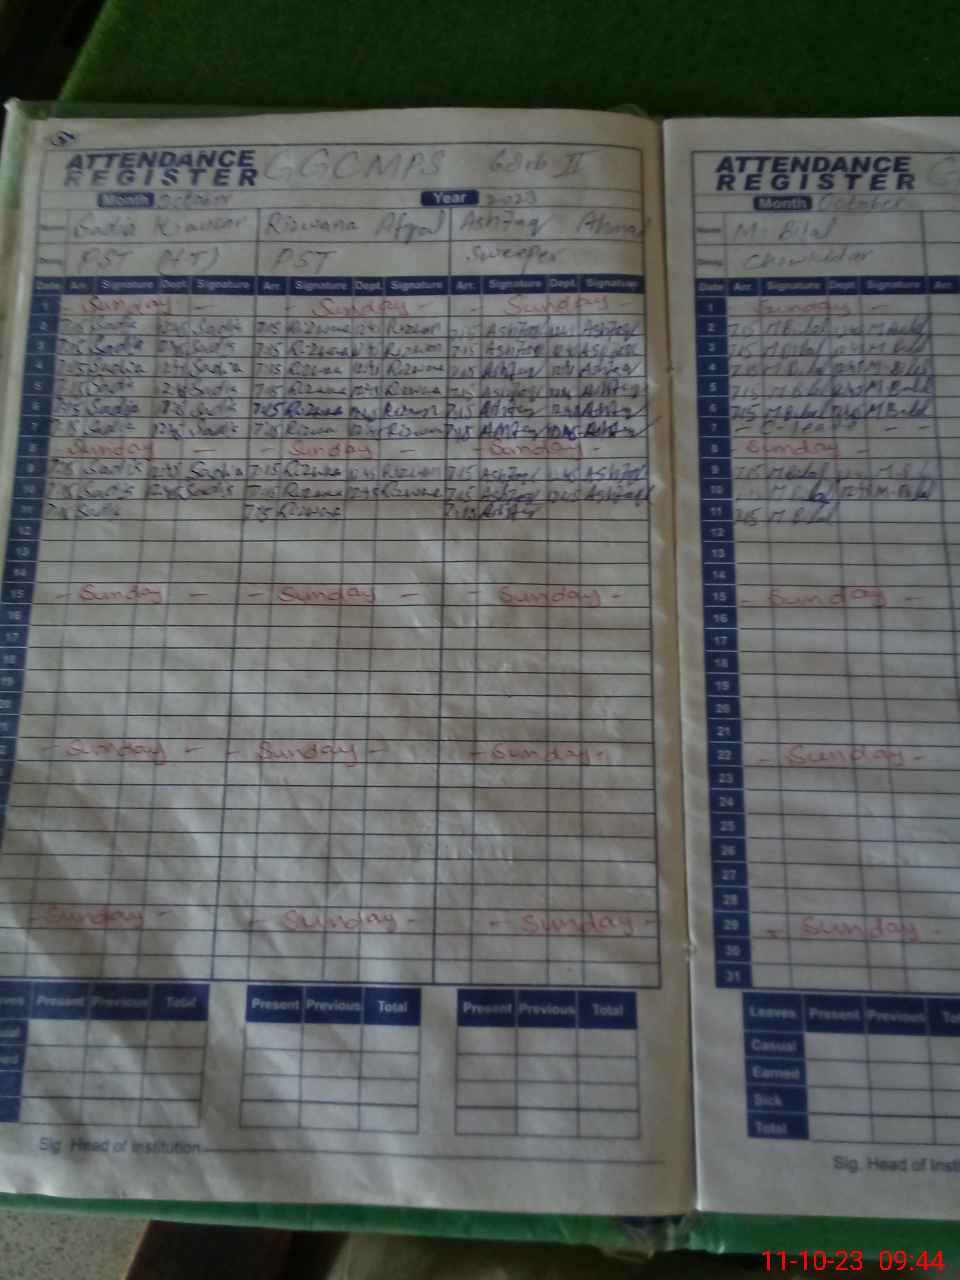 ATTENDANCE REGISTER GGCMPS 68 rb II
Month October Year 2023
Sadia Kawser Rizwana Afzal Ashfaq Ahmad
Desig PST (HT) PST Sweeper
Date Arr. Signature Dept. Signature Arr. Signature Dept. Signature Arr. Signature Dept. Signature
1 - Sunday - - Sunday - - Sunday -
2 7:15 Sadia 12:45 Sadia 7:15 Rizwana 12:45 Rizwan 7:15 Ashfaq Ashfaq
3 7:15 Sadia 12:45 Sadia 7:15 Rizwana Rizwan 7:15 Ashfaq Ashfaq
4 7:15 Sadia 12:45 Sadia 7:15 Rizwana 12:45 Rizwana 7:15 Ashfaq 12:45 Ashfaq
5 7:15 Sadia 12:45 Sadia 7:15 Rizwana 12:45 Rizwana 7:15 Ashfaq 12:45 Ashfaq
6 7:15 Sadia Sadia 7:15 Rizwana 12:45 Rizwan 7:15 Ashfaq 12:45 Ashfaq
7 7:15 Sadia 12:45 Sadia 7:15 Rizwana 12:45 Rizwana 7:15 Ashfaq 12:45 Ashfaq
8 Sunday - - Sunday - - Sunday -
9 7:15 Sadia 12:45 Sadia 7:15 Rizwana 12:45 Rizwana 7:15 Ashfaq 12:45 Ashfaq
10 7:15 Sadia 12:45 Sadia 7:15 Rizwana 12:45 Rizwana 7:15 Ashfaq 12:45 Ashfaq
11 7:15 Sadia 7:15 Rizwana 7:15 Ashfaq
12
13
14
15 - Sunday - - Sunday - - Sunday -
16
17
18
19
20
- Sunday - - Sunday - - Sunday -
- Sunday - - Sunday - - Sunday -
Present Previous Total Present Previous Total Present Previous Total
Sig. Head of Institution
ATTENDANCE REGISTER
Month October
Name M. Bilal
Desig Chowkidar
Date Arr. Signature Dept. Signature Arr
1 Sunday -
2 7:15 M Bilal M Bilal
3 7:15 M Bilal M Bilal
4 7:15 M Bilal 12:45 M Bilal
5 7:15 M Bilal 12:45 M Bilal
6 7:15 M Bilal 12:45 M Bilal
7 - C-leave - -
8 - Sunday -
9 7:15 M Bilal
10 M Bilal 12:45 M-Bilal
11 7:15 M Bilal
12
13
14
15 - Sunday -
16
17
18
19
20
21
22 - Sunday -
23
24
25
26
27
28
29 - Sunday -
30
31
Leaves Present Previous
Casual
Earned
Sick
Total
Sig. Head of
11-10-23 09:44